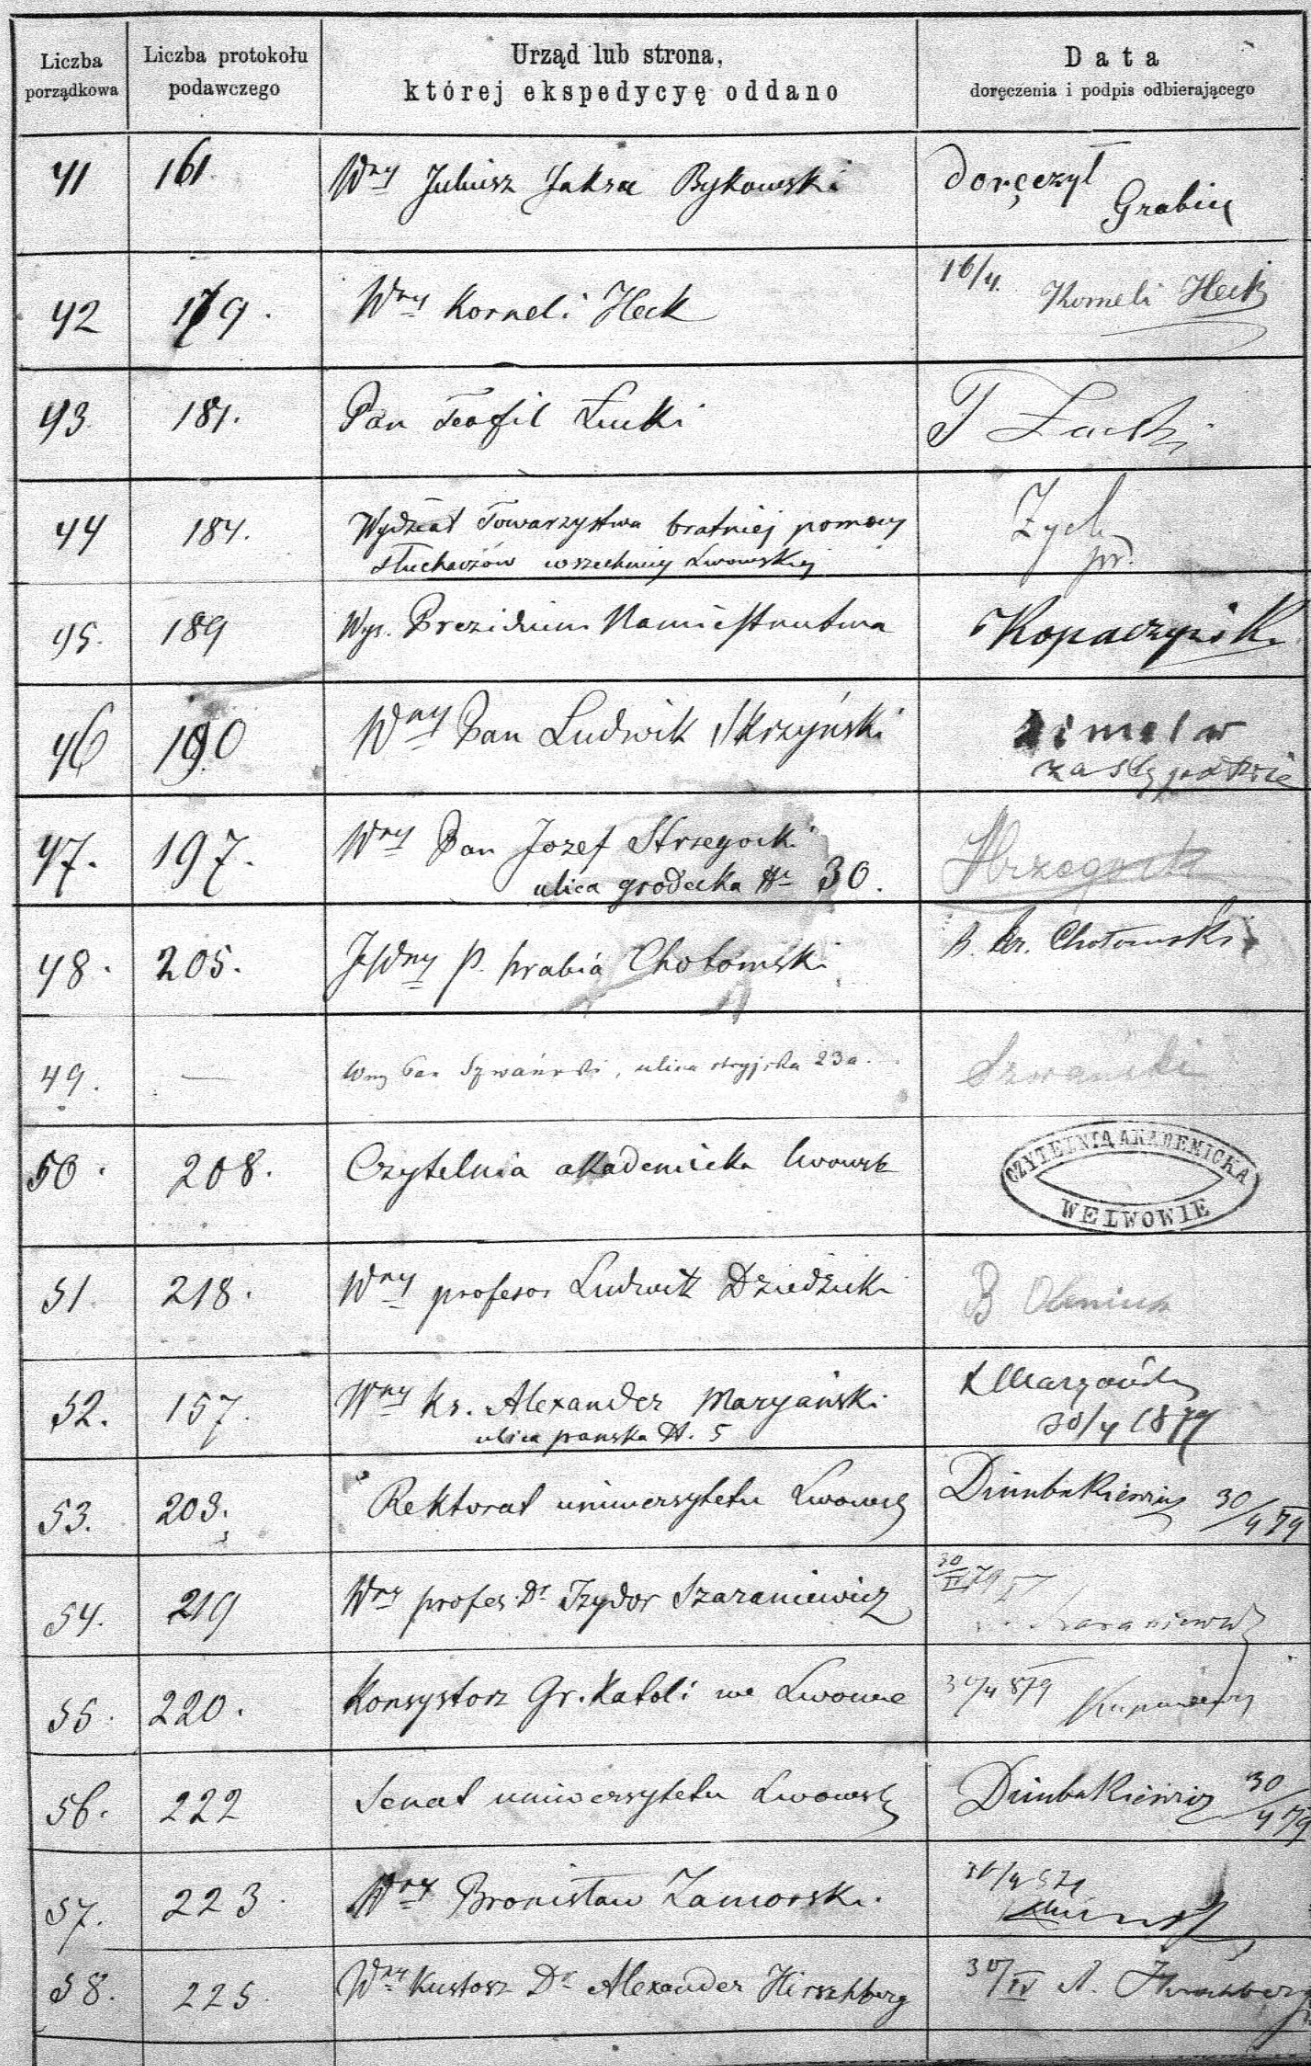 Liczba porządkowa
Liczba protokołu podawczego
Urząd lub strona, której ekspedycyę oddano
Data doręczenia i podpis odbierającego
41 161. Wny Juliusz Jaksa Bykowski doręczył Grabiń
42 179. Wny Korneli Heck 16/4. Korneli Heck
43 181. Pan Teofil Łucki T Łucki
44 184. Wydział Towarzystwa bratniej pomocy Zych
słuchaczów wszechnicy Lwowskiej
45. 189 Wys. Prezidium Namiestnictwa Kopaczyński
46 190 Wny Pan Ludwik Skrzyński
47. 197. Wny Pan Jozef Strzegocki
ulica grodecka Nr 30.
48. 205. JWny P. hrabia Chotomski B. hr. Chotomski
49. — Wny Pan Szwański, ulica stryjska 23a. Szwański
50. 208. Czytelnia akademicka lwowsk CZYTELNIA AKADEMICKA WE LWOWIE
51 218. Wny profesor Ludwik Dziedzicki B
52. 157. Wny ks. Alexander Maryański
ulica pańska N. 5 30/4 1879
53. 203. Rektorat uniwersytetu Lwowsk 30/4 79
54. 219 Wny profes. Dr Izydor Szaraniewicz 30/IV 79 Szaraniewicz
55. 220. Konsystorz Gr. Katoli we Lwowie 30/4 879
56. 222 Senat uniwersytetu Lwowsk 30/4 79
57. 223. Wny Bronisław Zamorski. 30/4 879
58. 225. Wny Kustosz Dr Alexander Hirschberg 30/IV A. Hirschberg